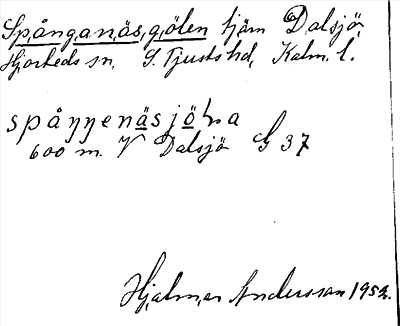 Spånganäsgölen tjärn Dalsjö,
Hjorteds sn. S. Tjusts hd, Kalm. l.
spåŋŋenäsjöꞎa
600 m. V Dalsjö G 37
Hjalmar Andersson 1952.